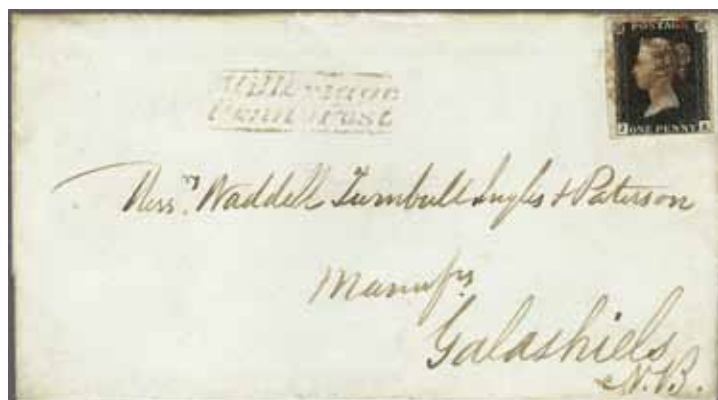 POSTAGE
J A
ONE PENNY
Penny Post
Messrs. Waddell Turnbull Inglis & Paterson
Manufrs
Galashiels
N.B.